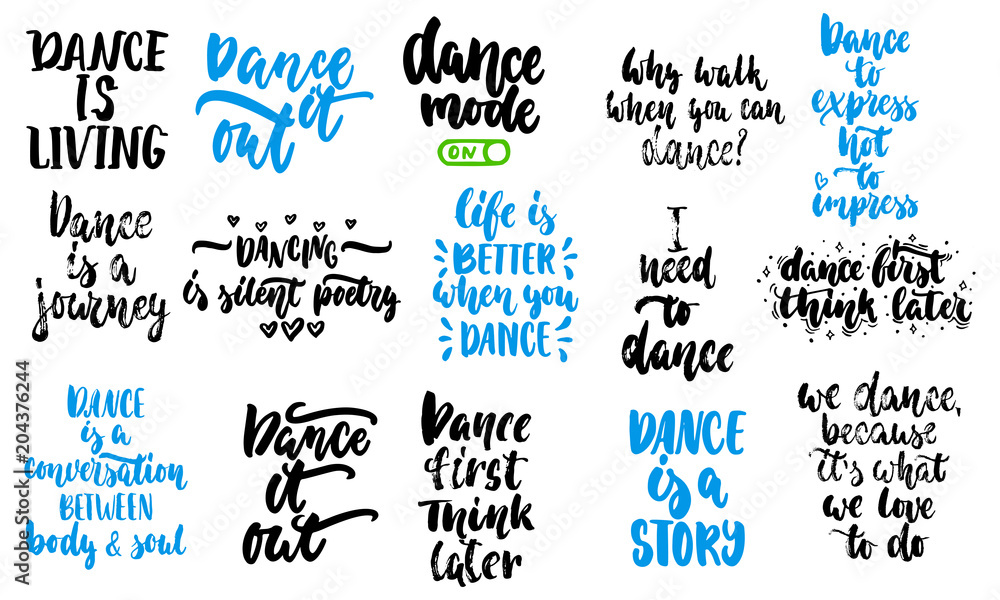 DANCE
IS
LIVING
Dance
it
out
dance
mode
ON
Why walk
when you can
dance?
Dance
to
express
not
to
impress
Dance
is a
journey
DANCING
is silent poetry
life is
BETTER
when you
DANCE
I
need
to
dance
dance first
think later
DANCE
is a
conversation
BETWEEN
body & soul
Dance
it
out
Dance
first
Think
later
DANCE
is a
STORY
we dance,
because
it's what
we love
to do
Adobe Stock | #204376244